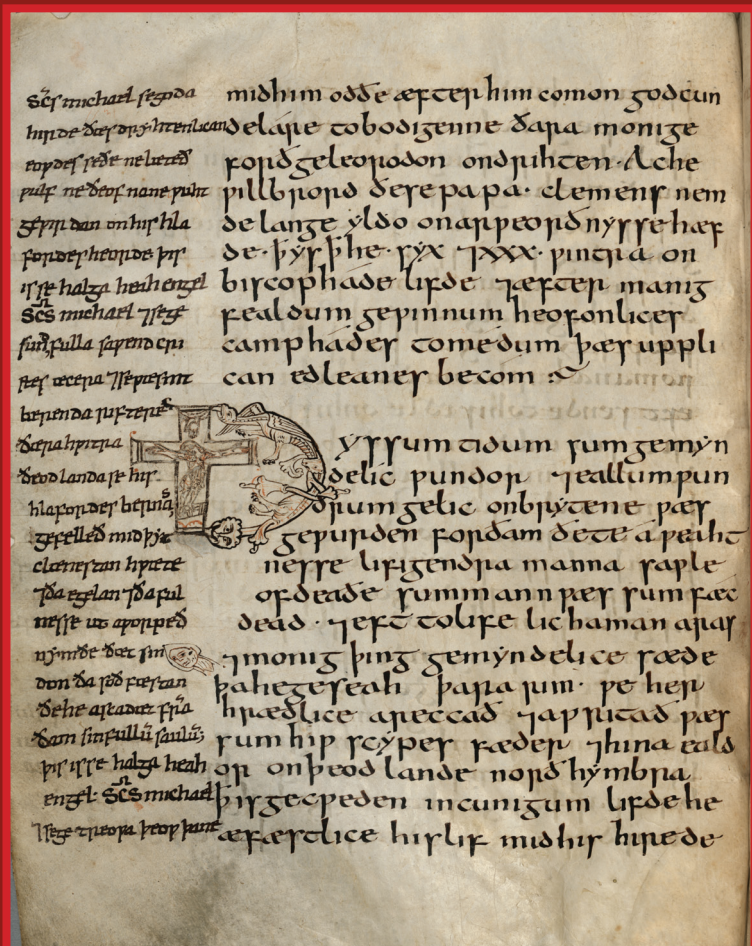 Sc̄s michael se goda
hirde ðæs dryhtenlican
eoƿdes se ðe ne læteð
ƿulf ne ðeof nane ƿuht
geƿirdan on his hla
fordes heorde þis
is se halga heah engel
Sc̄s michael ⁊ se ge
fulla saƿend cri
stes æcera ⁊ se
berenda riftere
ðæra hƿitra
ðeodlanda se his
hlafordes
gefelleð mid
clænestan hƿæte
⁊ ða egelan ⁊ ða ful
nesse ut aƿorpeð
nymðe ðæt sin
don ða soð fæstan
ðe he frā
ðam sinfullū saulū
þis is se halga heah
engel Sc̄s michael
⁊ se getreoƿa þeoƿ
mid him oððe æfter him comon godcun
de lare to bodigenne ðara monige
forð geleorodon ond rihten · Ac he
ƿillbrord ðe se papa · clemens nem
de lange yldo on arƿeorðnysse hæf
de · þys he · syx ⁊ xxx · ƿintra on
biscophade lifde ⁊ æfter manig
fealdum geƿinnum heofonlices
camphades to medum þæs uppli
can edleanes becom
Ðyssum tidum sum gemyn
delic ƿundor ⁊ eallum ƿun
drum gelic on brytene ƿæs
geƿurden forðam ðe te aƿeiht
nesse lifigendra manna saƿle
of deaðe sum mann ƿæs sum fæc
dead · ⁊ eft to life lichaman aras
⁊ monig þing gemyndelice sæde
þa he geseah þara sum · ƿe her
hrædlice areccað ⁊ aƿritað ƿæs
sum hiƿ scypes fæder ⁊ hina eald
or on þeodlande norðhymbra
þis gecƿeden in cunigum lifde he
æfæstlice his lif mid his hirede